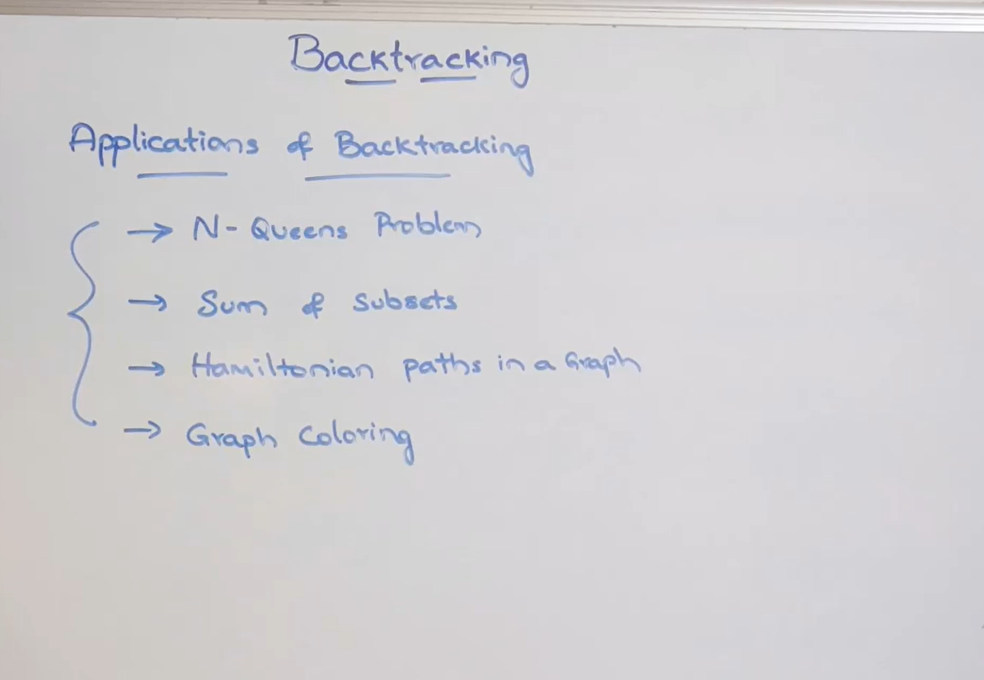 Backtracking
Applications of Backtracking
→ N-Queens Problem
→ Sum of subsets
→ Hamiltonian paths in a Graph
→ Graph Coloring